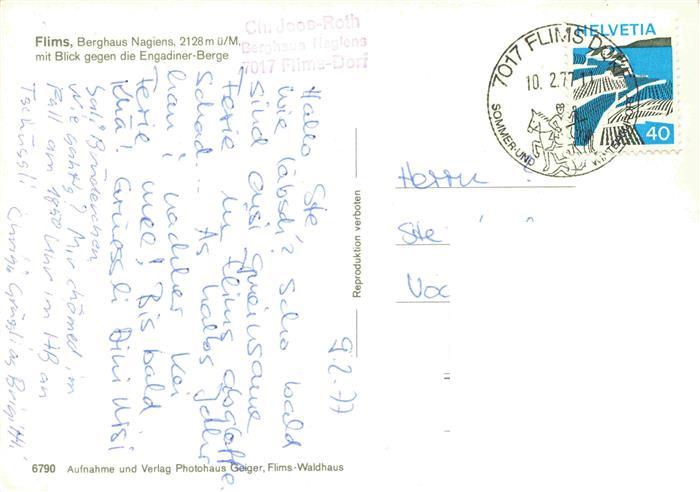 Flims, Berghaus Nagiens, 2128 m ü/M,
mit Blick gegen die Engadiner-Berge
Ch. Joos-Roth
Berghaus Nagiens
7017 Flims-Dorf
7017 FLIMS DORF
10. 2. 77
SOMMER-UND
HELVETIA
40
9.2.77
Hallo Ste
wie läbsch? Scho bald
sind üsi gmeinsame
Ferie in Flims
Schad... As halbs Jahr
han i nachher kei
Ferie mee! Bis bald
Grüessli Dini
Sali Brüederchen
Wie gahts? Mir chömed im
Fall am 1850 Uhr im HB an
Tschüssli
Grüssli
Herrn
Ste
Reproduktion verboten
6790 Aufnahme und Verlag Photohaus Geiger, Flims-Waldhaus